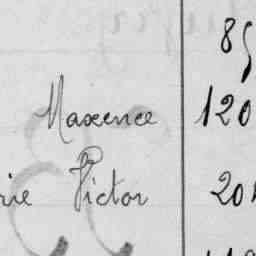 85
Maxence 120
rie Victor 204